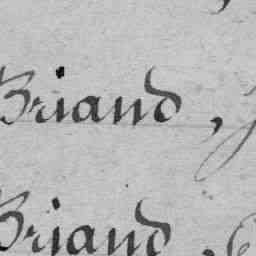 Briand,
Briand,